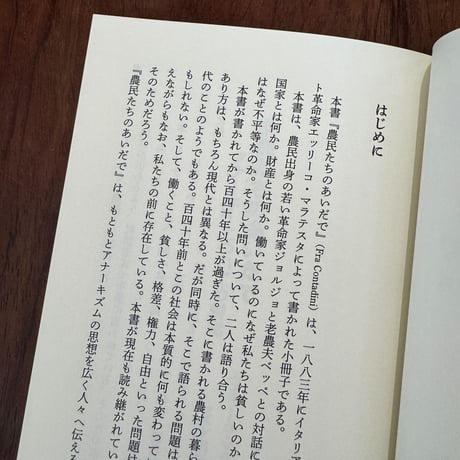 はじめに
本書『農民たちのあいだで』(Fra Contadini) は、一八八三年にイタリア
ト革命家エッリーコ・マラテスタによって書かれた小冊子である。
本書は、農民出身の若い革命家ジョルジョと老農夫ベッペとの対話に
国家とは何か。財産とは何か。働いているのになぜ私たちは貧しいのか
はなぜ不平等なのか。そうした問いについて、二人は語り合う。
本書が書かれてから百四十年以上が過ぎた。そこに書かれる農村の暮ら
あり方は、もちろん現代とは異なる。だが同時に、そこで語られる問題は
代のことのようでもある。百四十年前とこの社会は本質的に何も変わって
もしれない。そして、働くこと、貧しさ、格差、権力、自由といった問題は
えながらもなお、私たちの前に存在している。本書が現在も読み継がれてい
そのためだろう。
『農民たちのあいだで』は、もともとアナーキズムの思想を広く人々へ伝える